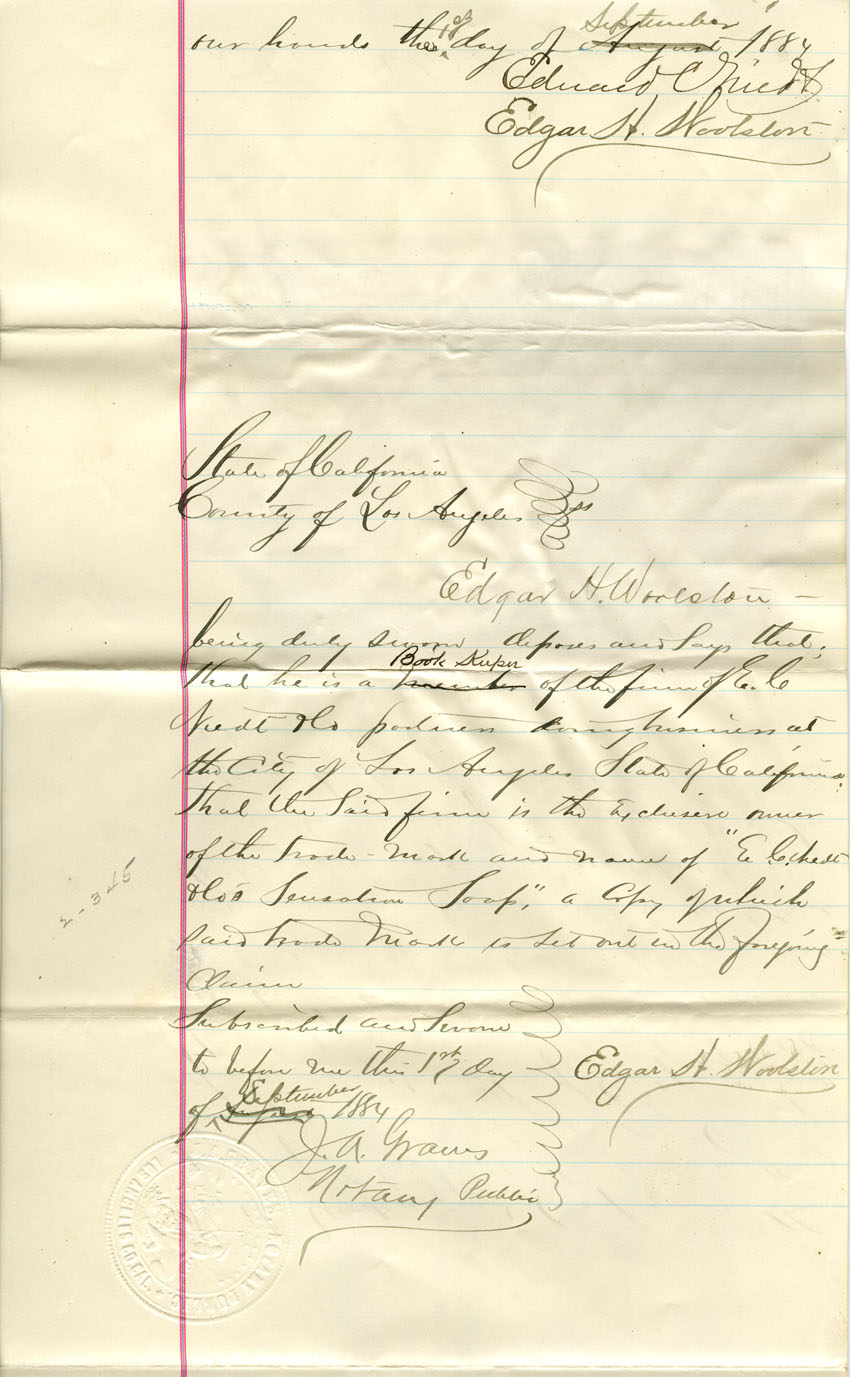 our hands the 1st day of August September 1884
Edward C Niedt
Edgar H. Woolston
State of California
County of Los Angeles ss
Edgar H. Woolston –
being duly sworn deposes and says that;
that he is a member Book Keeper of the firm of E. C
Niedt & Co partners doing business at
the City of Los Angeles State of California:
that the said firm is the exclusive owner
of the trade-mark and name of "E. C. Niedt
& Co's Sensation Soap", a copy of which
said trade mark is set out in the foregoing
claim
Subscribed and sworn
to before me this 1st day
of August September 1884
Edgar H. Woolston
J. A. Graves
Notary Public
2-345